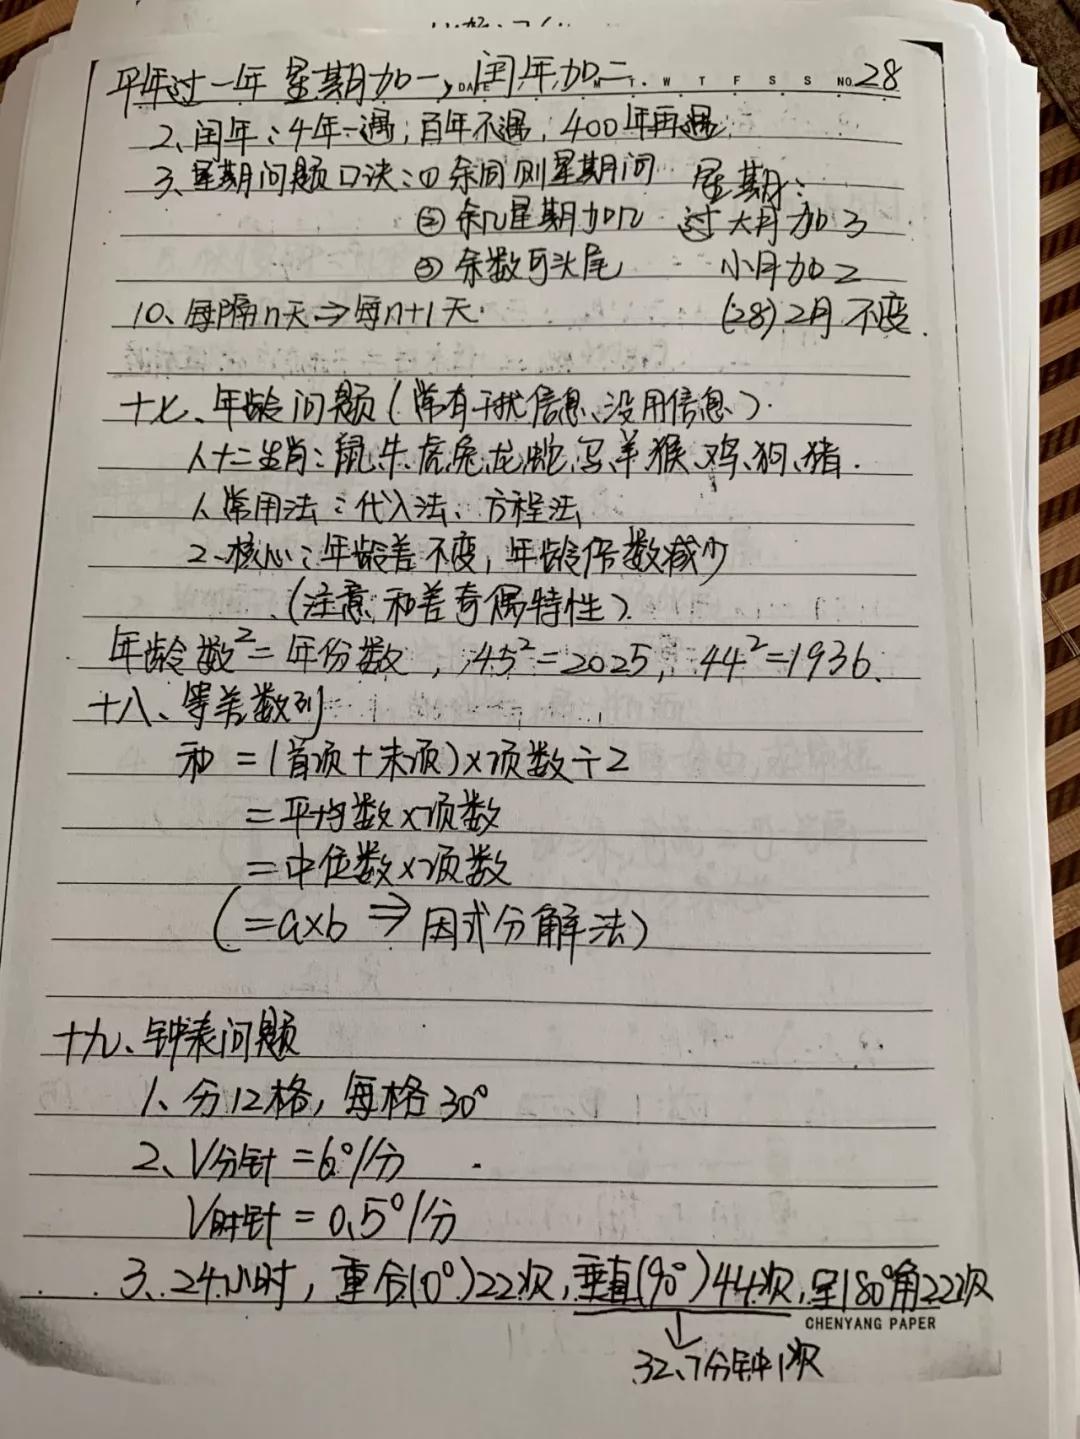 平年过一年 星期加一,闰年加二
DATE M T W T F S S NO. 28
2、闰年:4年一遇,百年不遇,400年再遇
3、星期问题口诀:① 余同则星期同
星期:
② 余几星期加几 过大月加3
③ 余数可头尾 小月加2
10、每隔n天⇒每n+1天. (28)2月 不变.
十七、年龄问题(常有干扰信息、没用信息).
人十二生肖:鼠、牛、虎、兔、龙、蛇、马、羊、猴、鸡、狗、猪.
1、常用法:代入法、方程法
2、核心:年龄差不变,年龄倍数减少
(注意:和差奇偶特性)
年龄数²=年份数,45²=2025,44²=1936.
十八、等差数列
和=(首项+末项)×项数÷2
=平均数×项数
=中位数×项数
(=a×b ⇒ 因式分解法)
十九、钟表问题
1、分12格,每格30°
2、V分针=6°/分
V时针=0.5°/分
3、24小时,重合(0°)22次,垂直(90°)44次,呈180°角22次
CHENYANG PAPER
32.7分钟1次